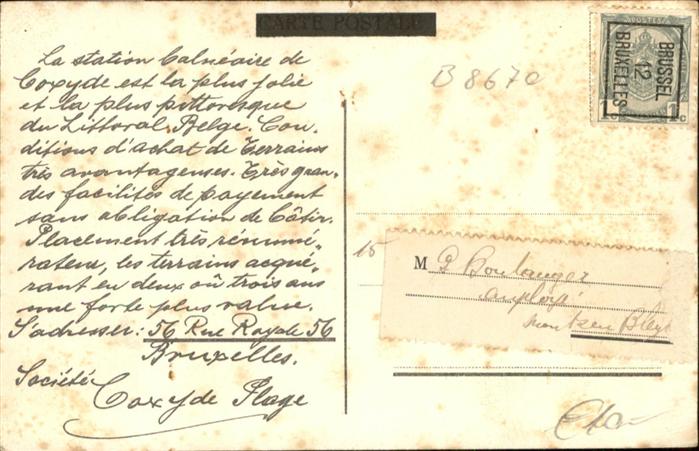 CARTE POSTALE
La station Balnéaire de
Coxyde est la plus jolie
et la plus pittoresque
du Littoral Belge. Con-
ditions d'achat de Terrains
très avantageuses. Très gran-
des facilités de payement
sans obligation de bâtir.
Placement très rénumé-
rateur, les terrains acqué-
rant en deux où trois ans
une forte plus value.
S'adresser: 56 Rue Royale 56
Bruxelles.
Société
Coxyde Plage
B 8670
POSTES
1 1
C
BRUSSEL
12
BRUXELLES
15
M Boulanger
employé